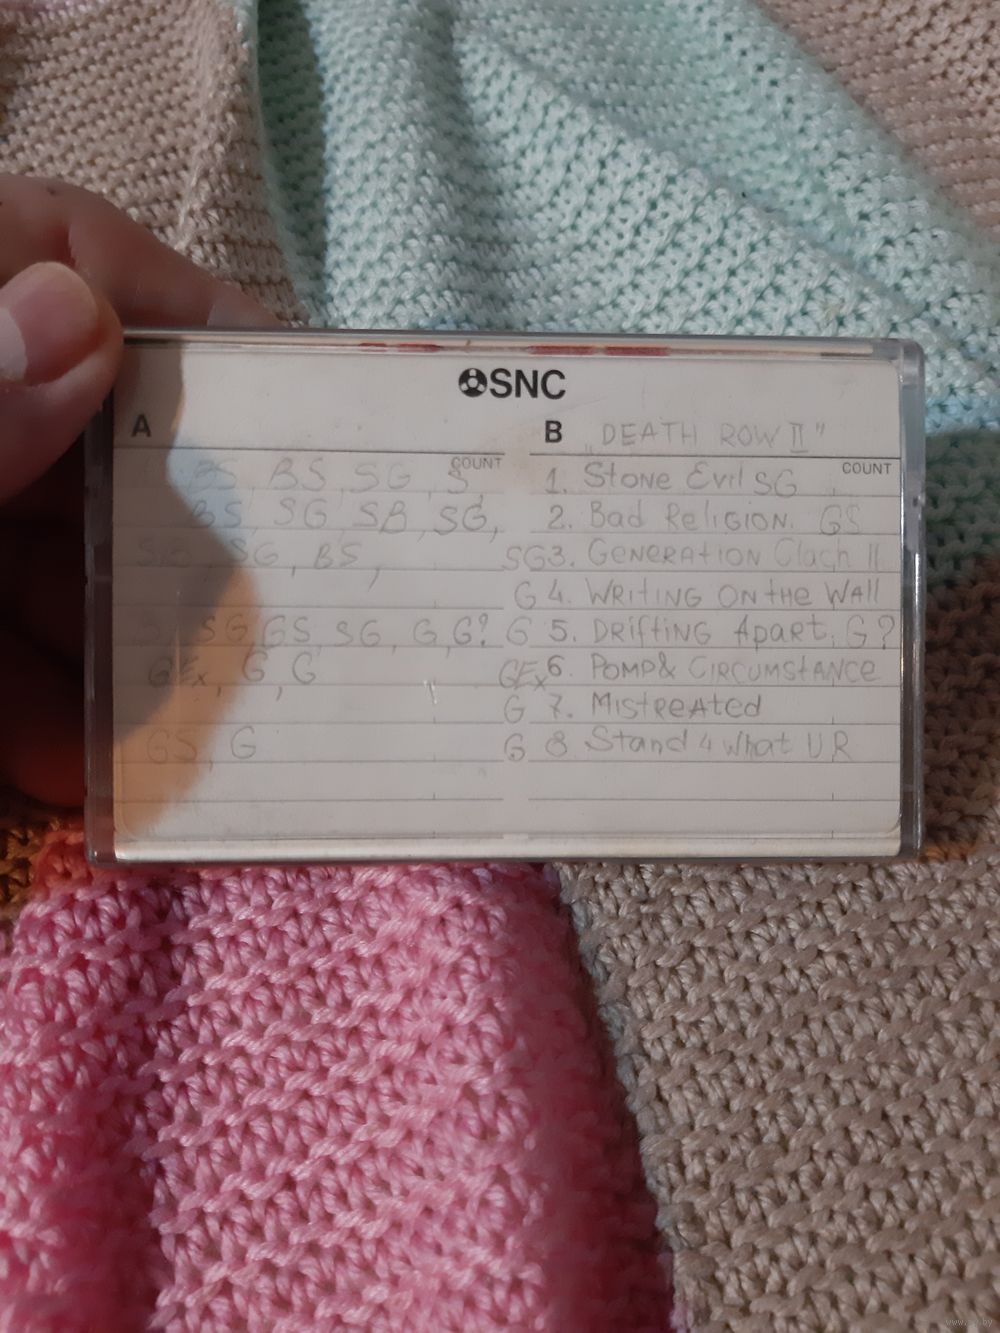 SNC
A
COUNT
BS, BS, SG, S,
BS, SG, SB, SG,
SG, SG, BS,
SG, GS, SG, G, G?
GEx, G, G
GS, G
B „DEATH ROW II"
COUNT
1. Stone Evil SG
2. Bad Religion. GS
SG 3. Generation Clach II
G 4. Writing on the Wall
G 5. Drifting Apart, G?
GEx 6. Pomp & Circumstance
G 7. Mistreated
G 8. Stand 4 what U R